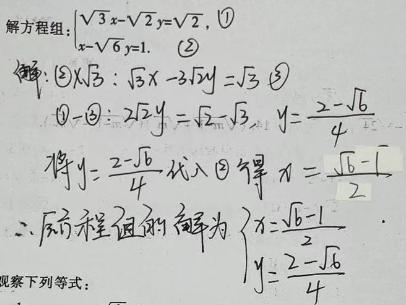 解方程组:{√3 x-√2 y=√2, ①
x-√6 y=1. ②
解: ②×√3 : √3x -3√2y =√3 ③
①-③: 2√2y =√2-√3, y= (2-√6)/4
将y= (2-√6)/4 代入②得 x = (√6-1)/2
∴原方程组的解为 {x= (√6-1)/2
y= (2-√6)/4
观察下列等式: